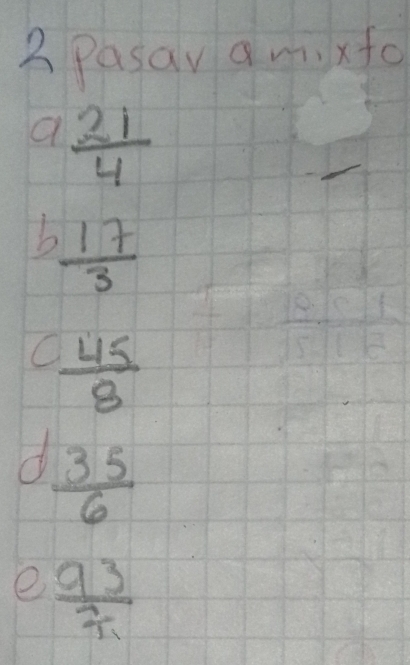 2 Pasar a mixto
a 21/4
b 17/3
c 45/8
d 35/6
e 93/7